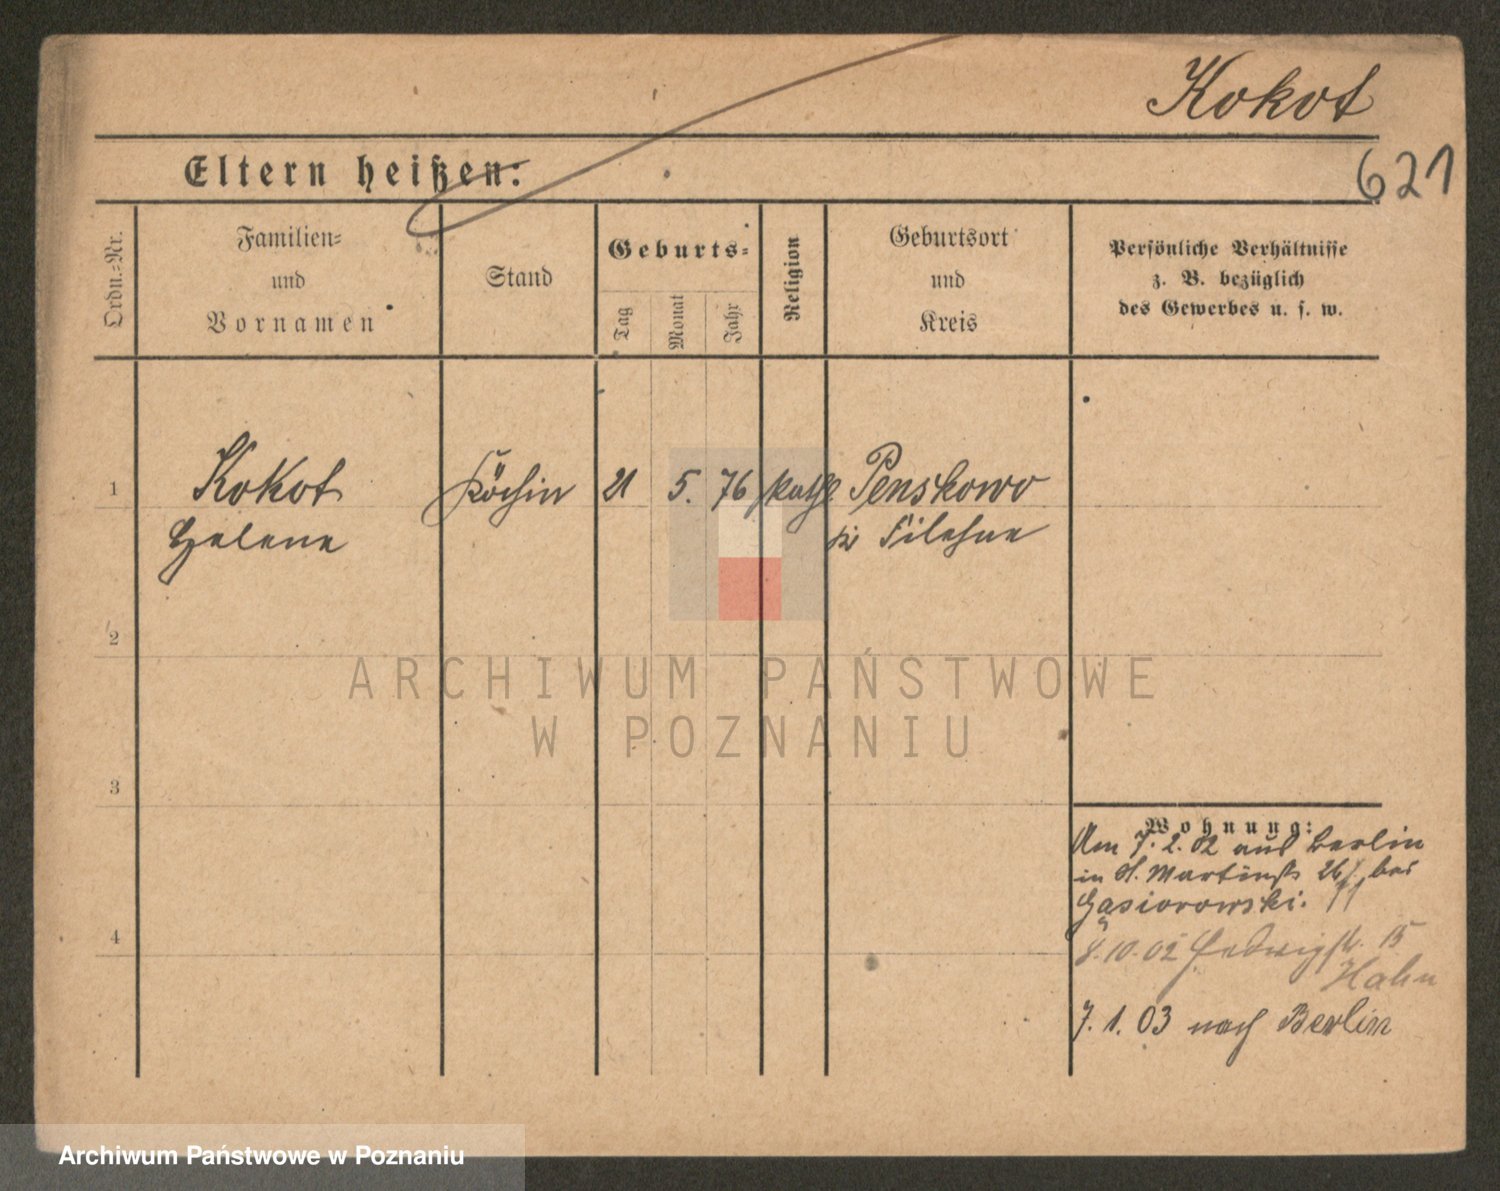 Kokot
Eltern heißen:
621
Ordn.=Nr.
Familien=
und
Vornamen
Stand
Geburts=
Tag
Monat
Jahr
Religion
Geburtsort
und
Kreis
Persönliche Verhältnisse
z. B. bezüglich
des Gewerbes u. s. w.
1
Kokot
Helene
Köchin
21
5.
76
kath
Penskowo
Filehne
2
ARCHIWUM PAŃSTWOWE
W POZNANIU
3
4
Wohnung:
Am 7. 2. 02 aus Berlin
in St. Martinstr 26 bei
Gąsiorowski.
8. 10. 02 Hedwigstr. 15
Hahn
7. 1. 03 nach Berlin
Archiwum Państwowe w Poznaniu